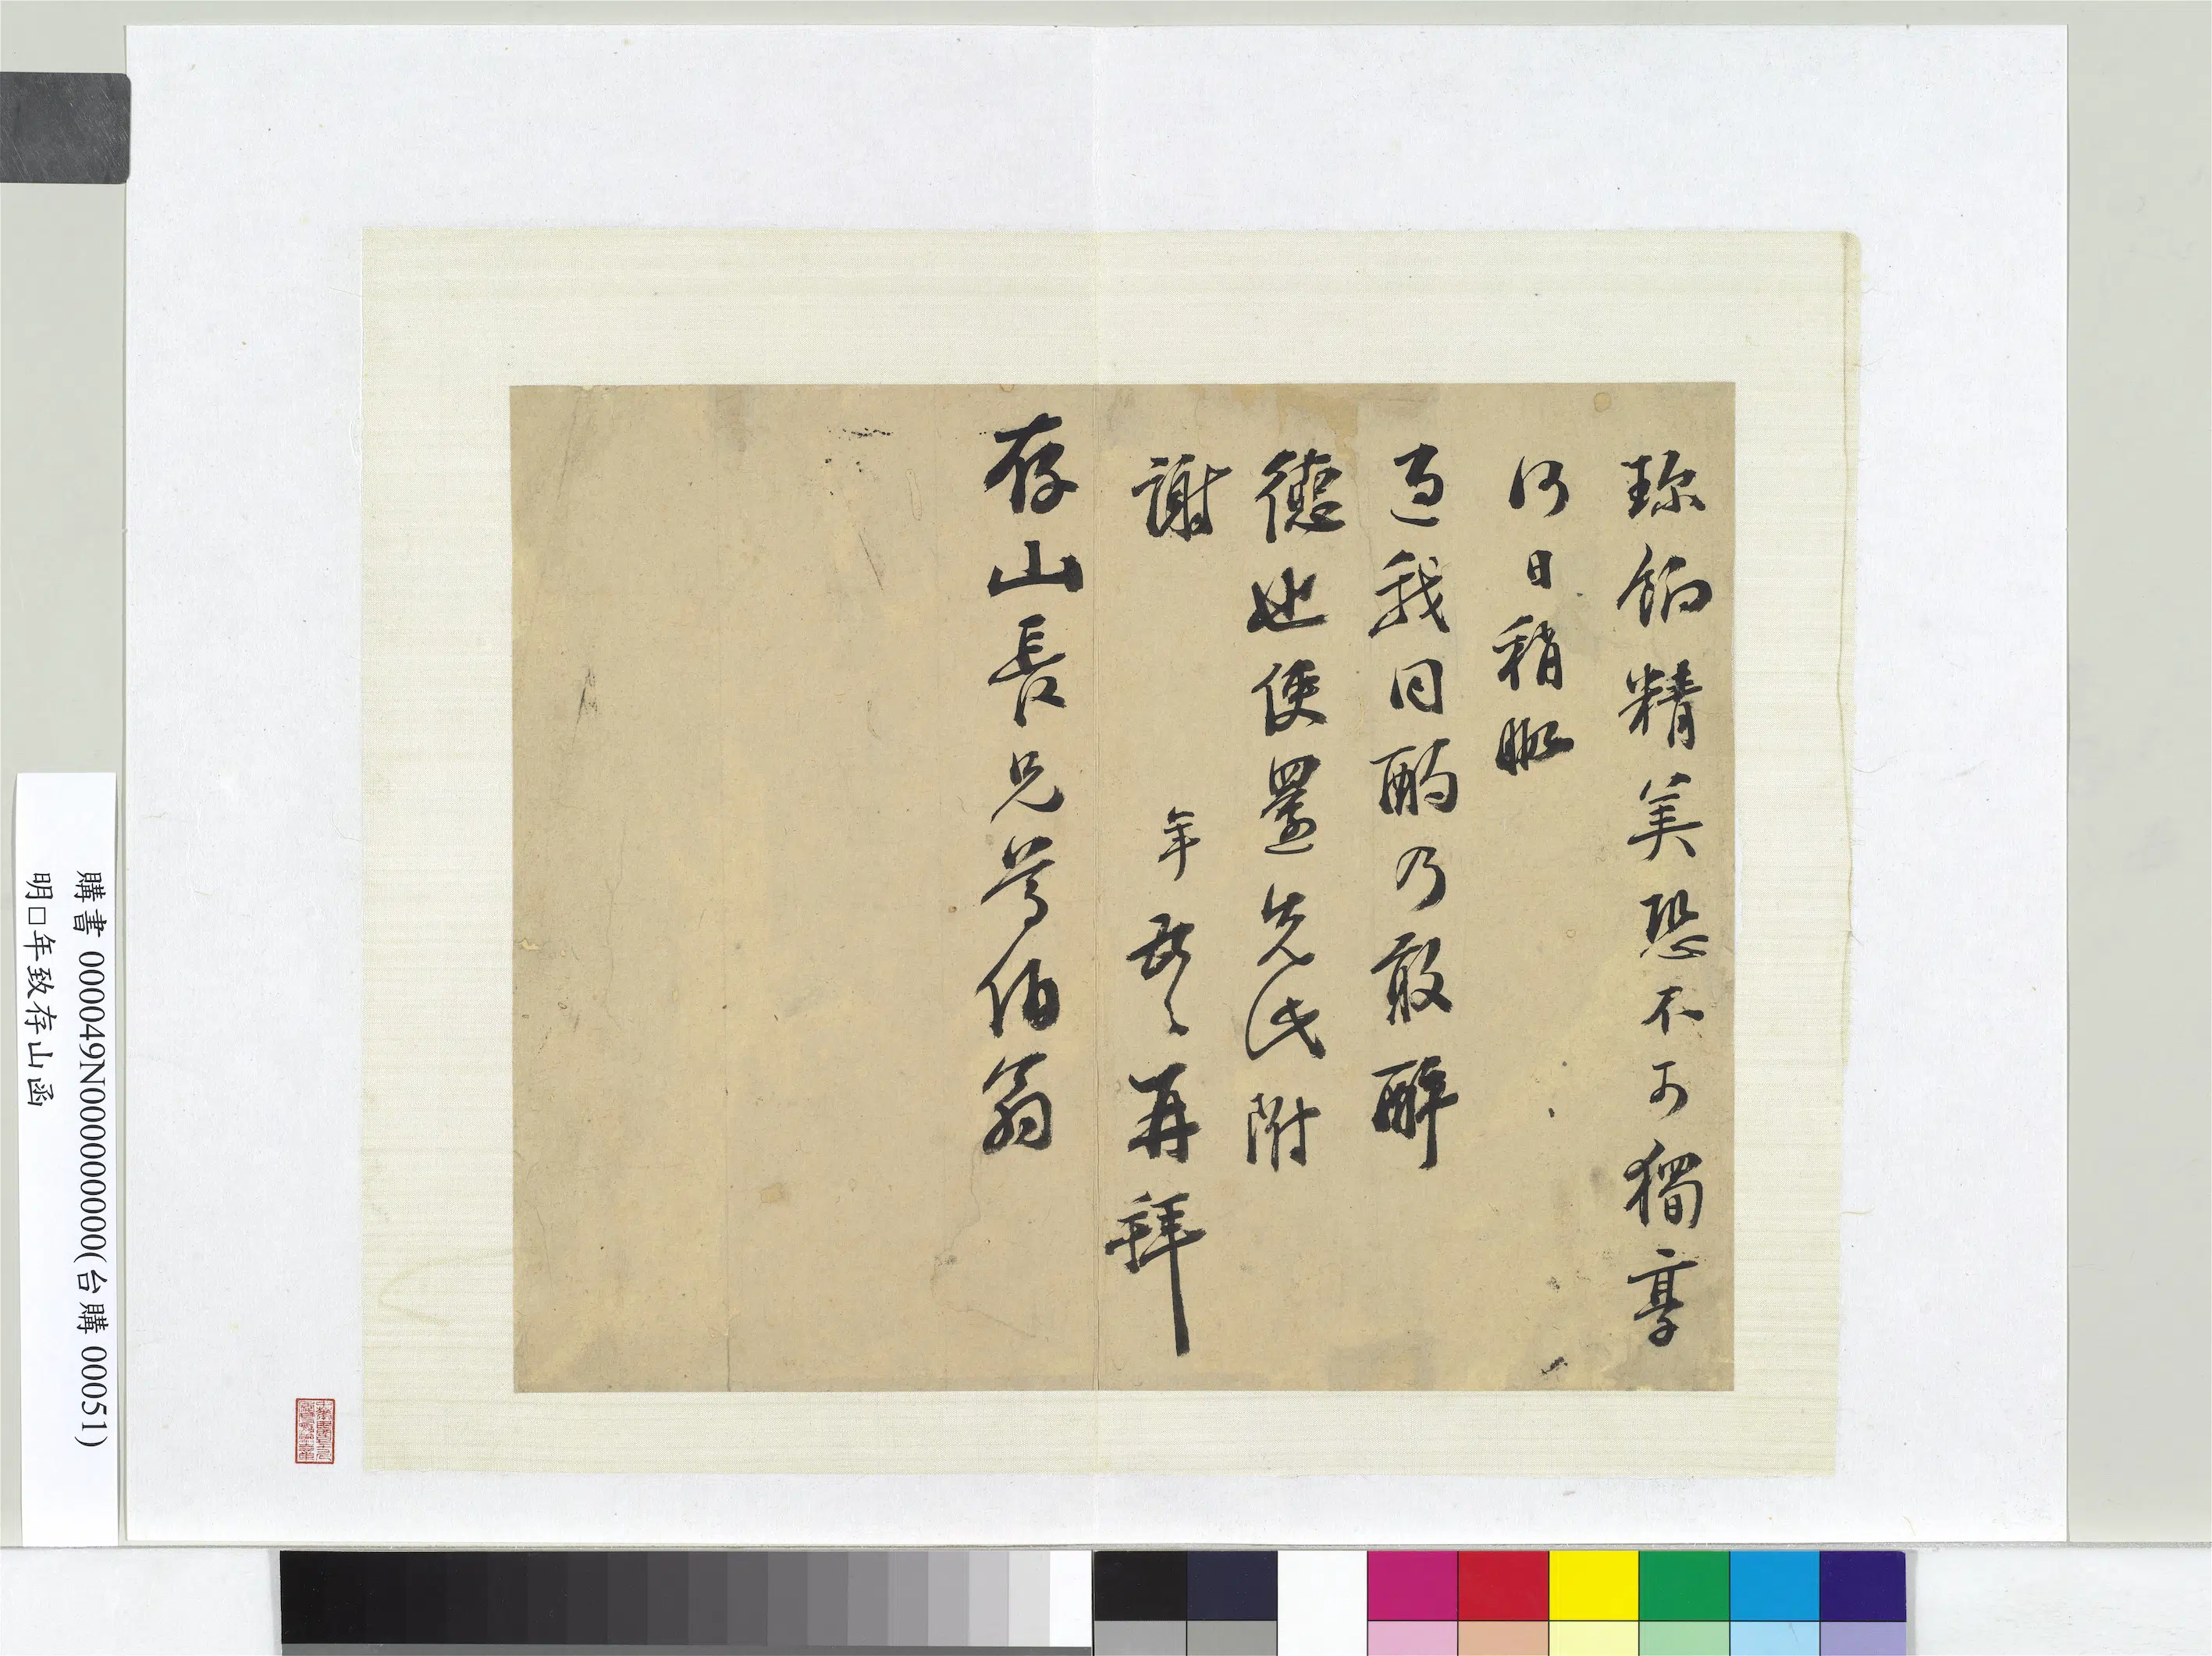 珍餉精美恐不可獨享
何日稍暇
過我同酌乃敢醉
德也使還先此附
謝
年 再拜
存山長兄尊伯翁
購書 000049N000000000(台購 00051)
明□年致存山函